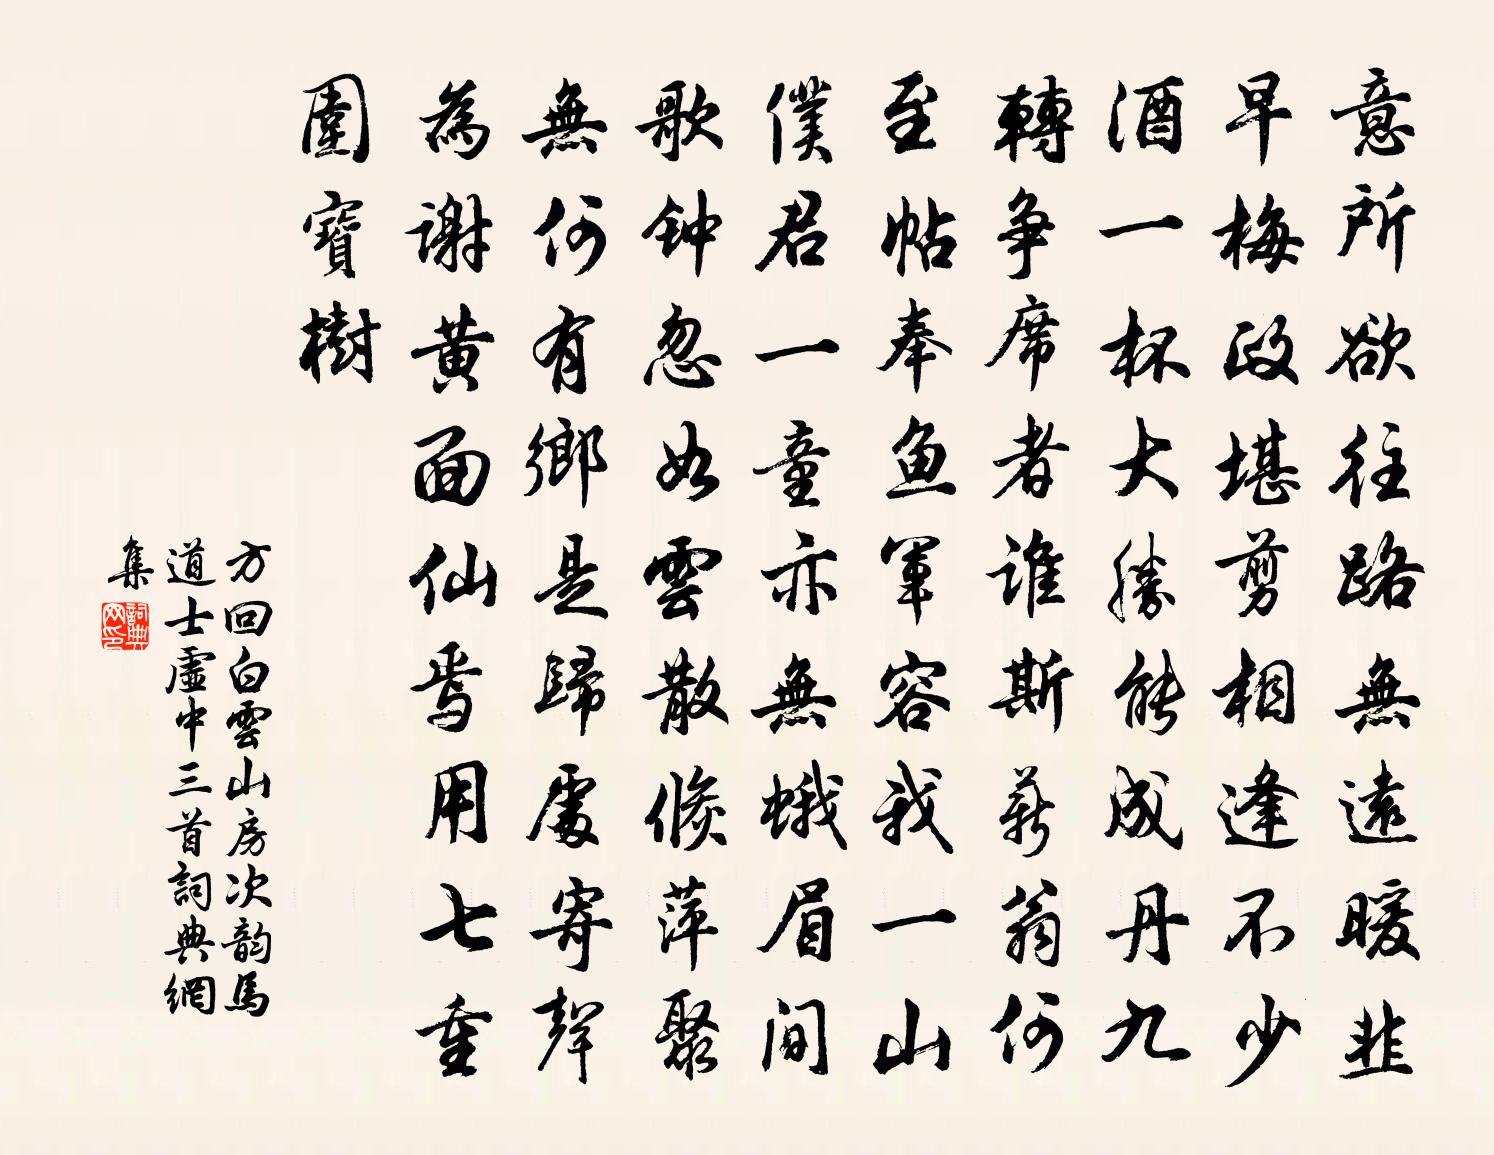 意所欲往路無遠暖韭
早梅政堪剪相逢不少
酒一杯大勝能成丹九
轉争席者誰斯薪翁何
至帖奉魚軍容我一山
僕君一童亦無蛾眉間
歌钟忽如雲散倏萍聚
無何有鄉是歸處寄聲
為謝黄面仙焉用七重
圍寶樹
方回白雲山房次韵馬
道士虛中三首詞典網
集
詞典
网印